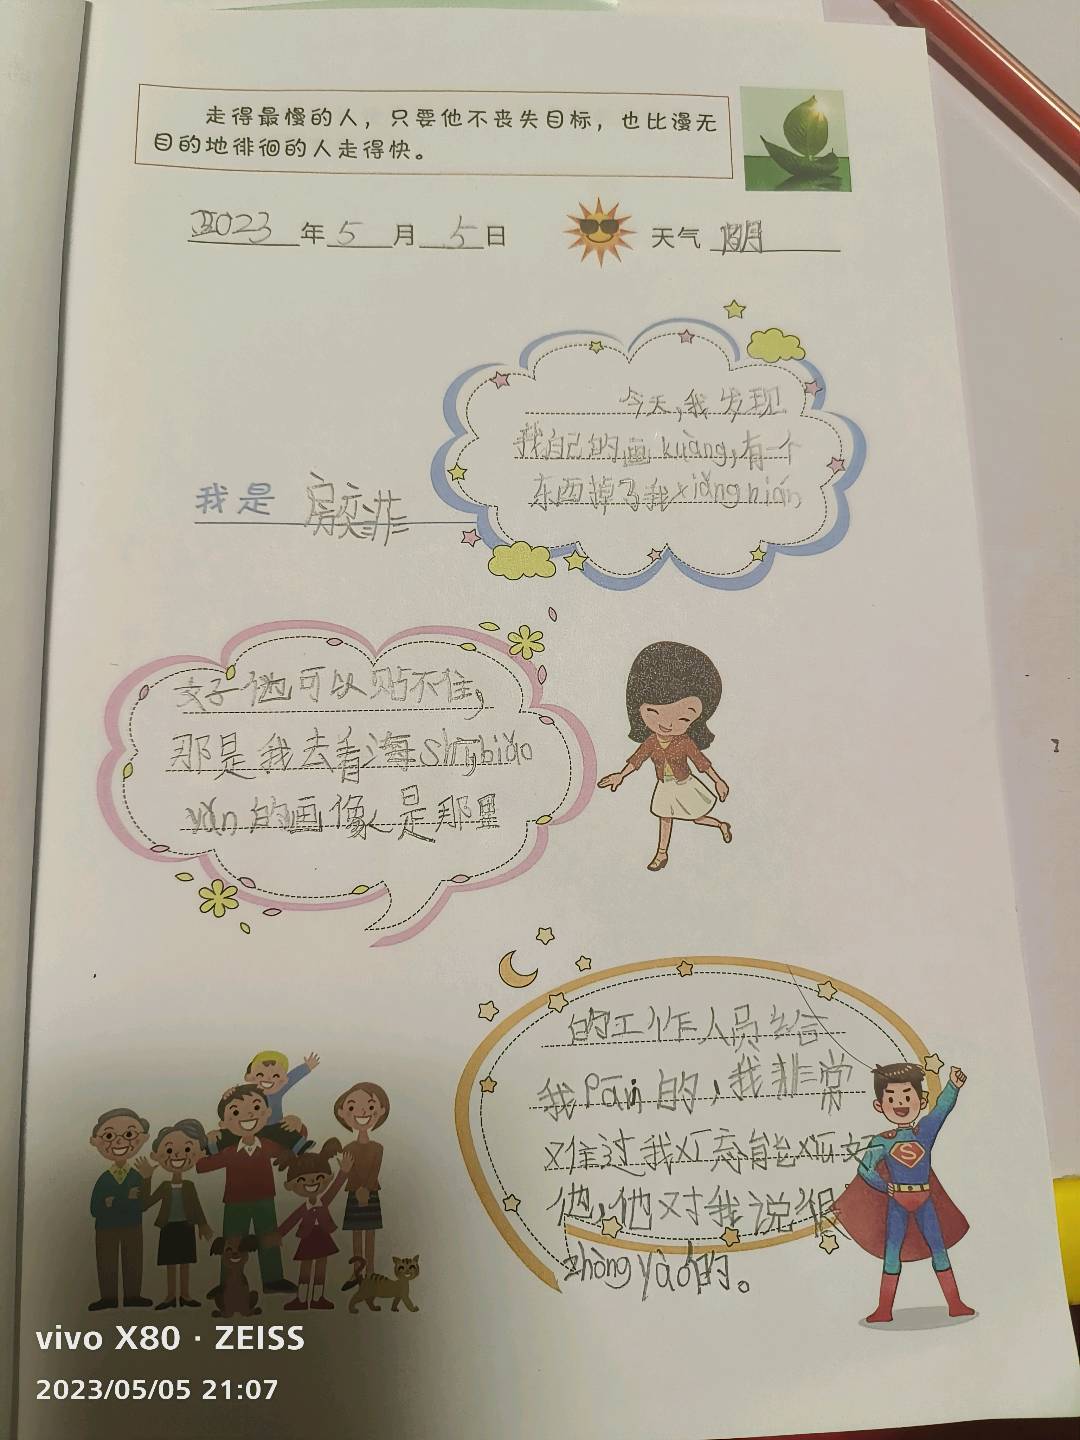 走得最慢的人，只要他不丧失目标，也比漫无
目的地徘徊的人走得快。
2023年5月5日 天气 阴
今天,我发现
我自己的画kuàng,有一个
东西掉了我xiǎng nián
我是 房奕菲
文子他可以贴不住,
那是我去看海shī biǎo
yǎn的画像是那里
的工作人员给
我Pāi的,我非常
难过我不能 好
他,他对我说很
zhòng yào的。
S
vivo X80 · ZEISS
2023/05/05 21:07